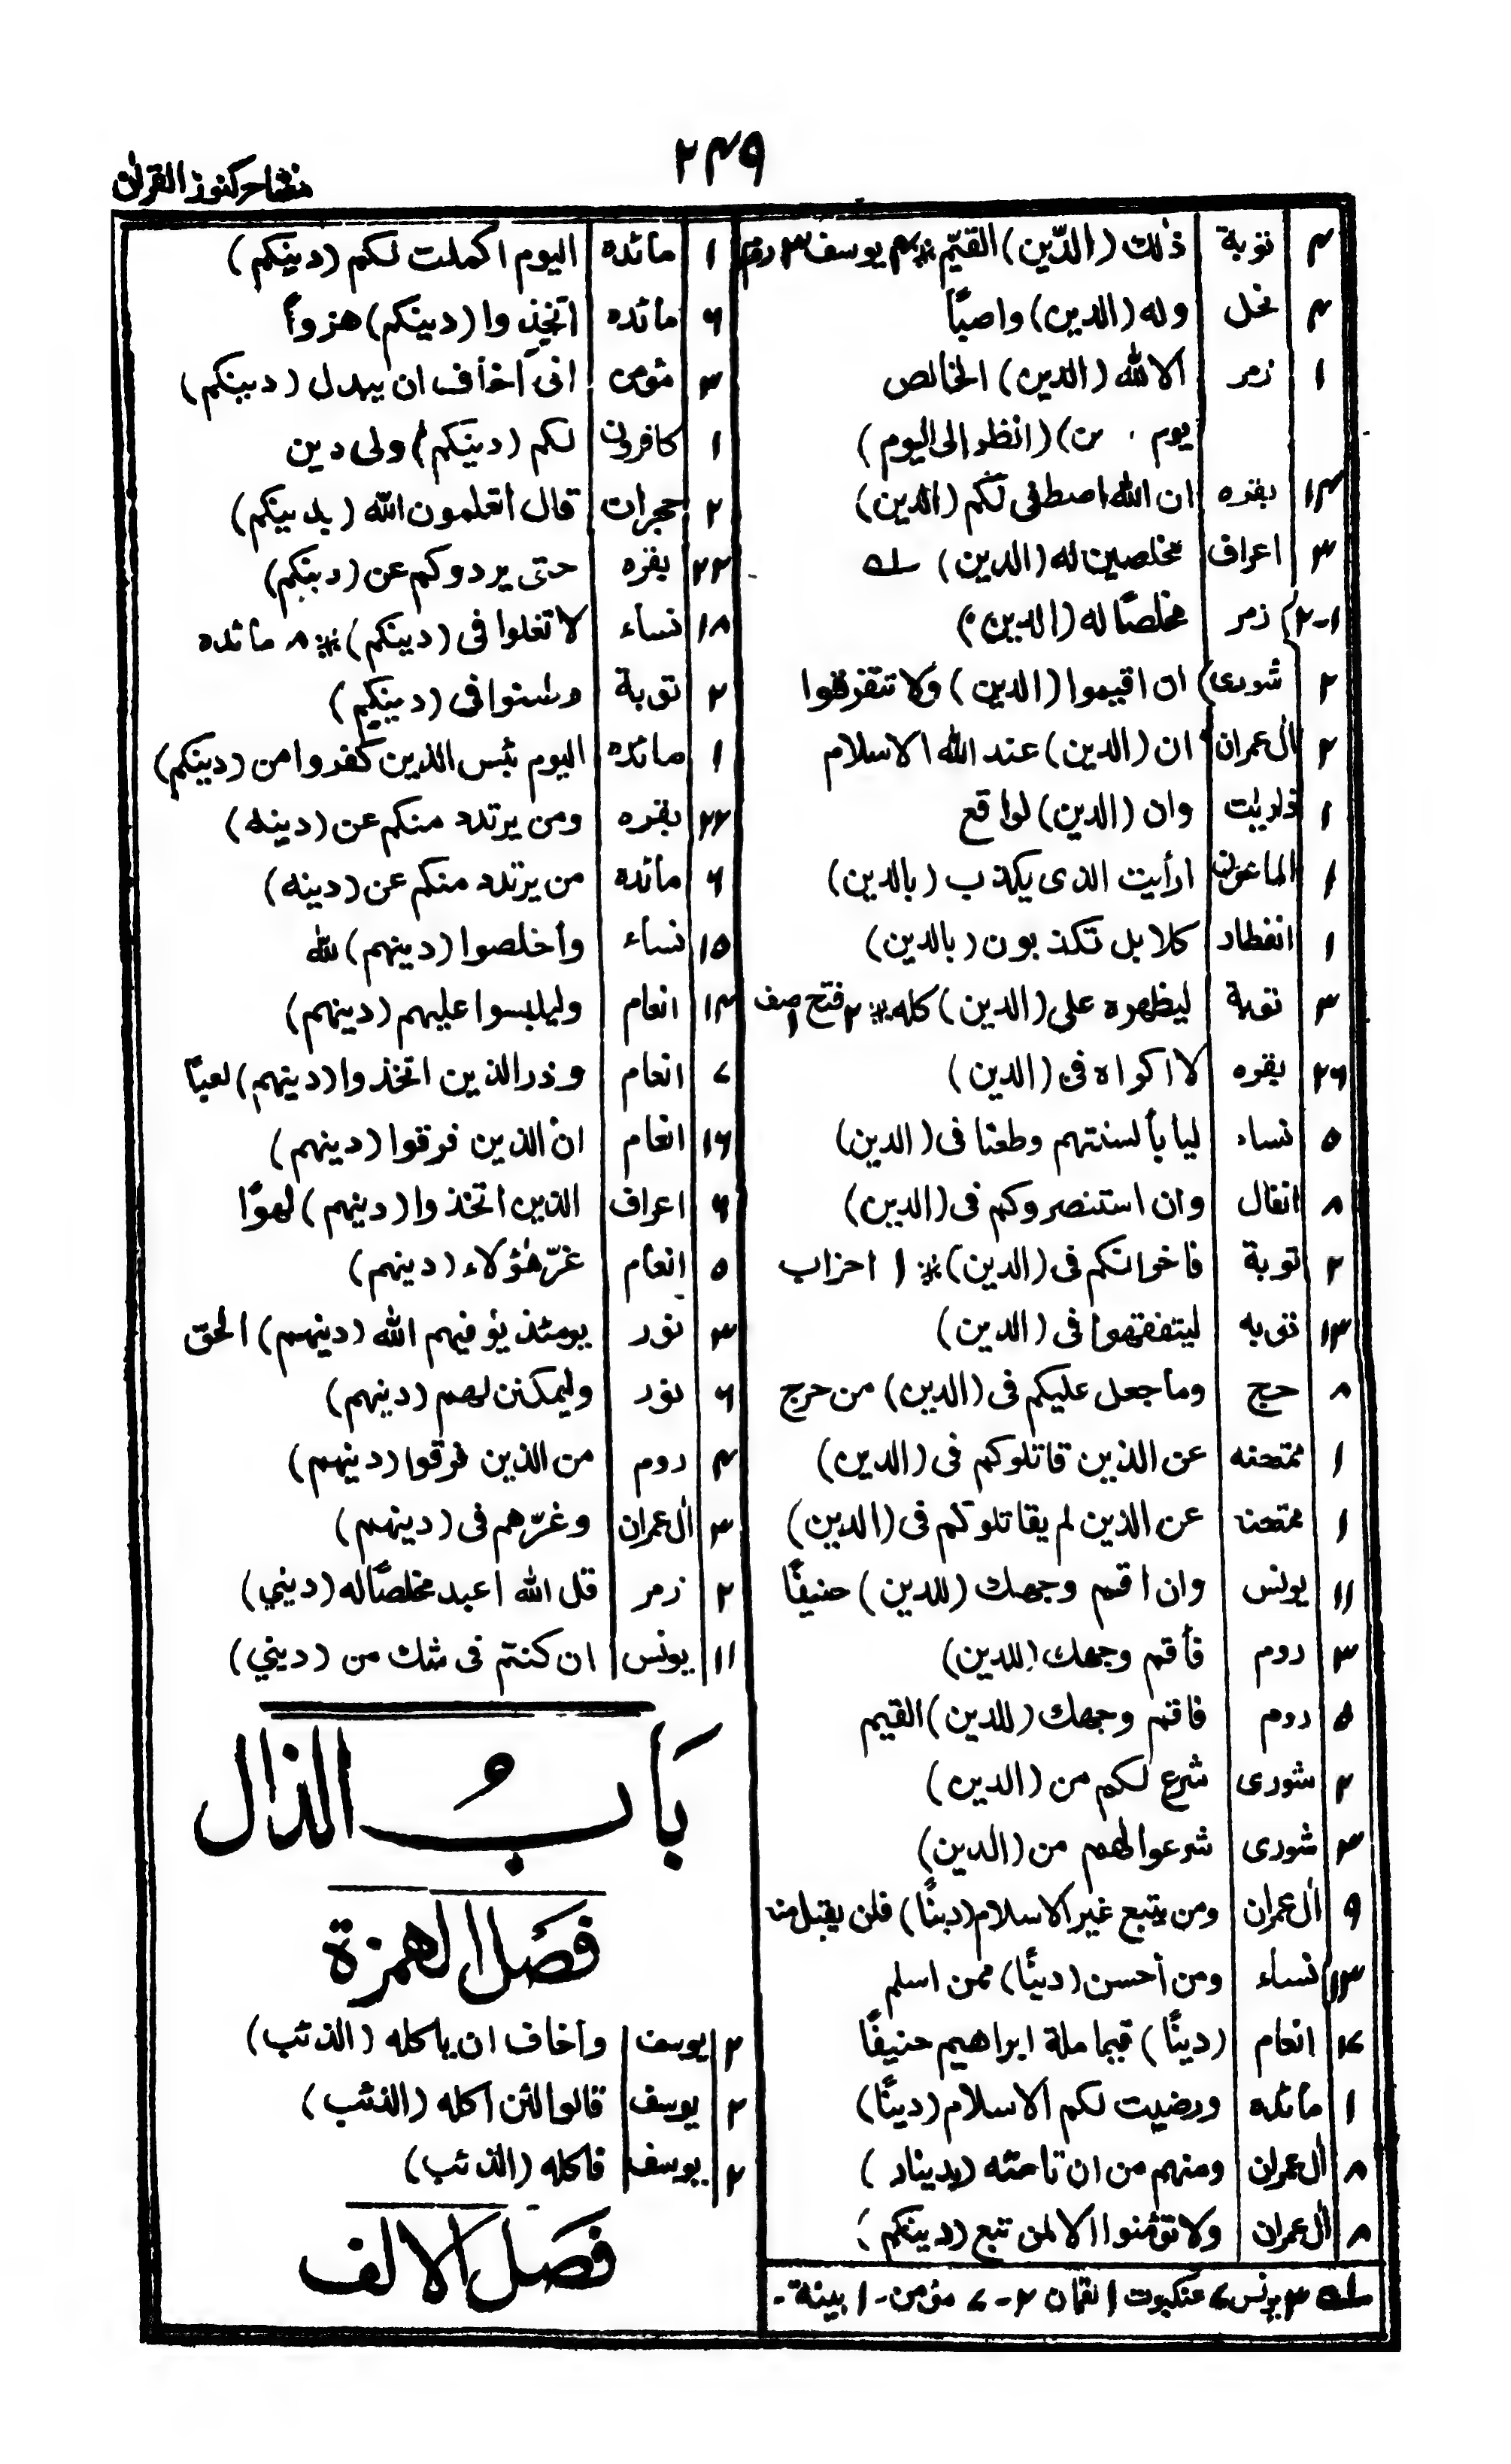 ۲۴۹
مفتاح كنوز القرآن
۴ توبة ذٰلك (الدّين) القيّم ※ ۴ يوسف ۳ روم
۴ نحل وله (الدين) واصبًا
۱ زمر الا لله (الدين) الخالص
يوم (انظر الى اليوم)
۱۴ بقره ان الله اصطفى لكم (الدين)
۳ اعراف مخلصين له (الدين) ؎
۱-۲ زمر مخلصًا له (الدين)
۲ شورى ان اقيموا (الدين) ولا تتفرقوا
۲ اٰل عمران ان (الدين) عند الله الاسلام
۱ ذاريٰت وان (الدين) لواقع
۱ الماعون ارأيت الذى يكذب (بالدين)
۱ انفطار كلا بل تكذبون (بالدين)
۳ توبة ليظهره على (الدين) كله ※ ۲ فتح ۱ صف
۲۶ بقره لا اكراه فى (الدين)
۵ نساء ليا بألسنتهم وطعنا فى (الدين)
۸ انفال وان استنصروكم فى (الدين)
۲ توبة فاخوانكم فى (الدين) ※ ۱ احزاب
۱۳ توبه ليتفقهوا فى (الدين)
۸ حج وما جعل عليكم فى (الدين) من حرج
۱ ممتحنه عن الذين قاتلوكم فى (الدين)
۱ ممتحنه عن الذين لم يقاتلوكم فى (الدين)
۱۱ يونس وان اقم وجهك (للدين) حنيفًا
۳ روم فأقم وجهك (للدين)
۵ روم فاقم وجهك (للدين) القيم
۲ شورى شرع لكم من (الدين)
۳ شورى شرعوا لهم من (الدين)
۹ اٰل عمران ومن يتبع غير الاسلام (دينًا) فلن يقبل منه
۱۳ نساء ومن أحسن (دينًا) ممن اسلم
انعام (دينًا) قيما ملة ابراهيم حنيفًا
۱ مائده ورضيت لكم الاسلام (دينًا)
۸ اٰل عمران ومنهم من ان تامنه (بدينار)
۸ اٰل عمران ولا تؤمنوا الا لمن تبع (دينكم)
؎ ۳ يونس ۷ عنكبوت ۱ لقمان ۲-۷ مؤمن-۱ بينة-
۱ مائده اليوم اكملت لكم (دينكم)
۶ مائده اتخذوا (دينكم) هزوا
۳ مؤمن انى أخاف ان يبدل (دينكم)
۱ كافرون لكم (دينكم) ولى دين
۲ حجرات قال اتعلمون الله (بدينكم)
۲۲ بقره حتى يردوكم عن (دينكم)
۱۸ نساء لا تغلوا فى (دينكم) ※ ۸ مائده
۲ توبة وطعنوا فى (دينكم)
۱ مائده اليوم يئس الذين كفروا من (دينكم)
۲۲ بقره ومن يرتدد منكم عن (دينه)
۶ مائده من يرتدد منكم عن (دينه)
۱۵ نساء وأخلصوا (دينهم) لله
۱۴ انعام وليلبسوا عليهم (دينهم)
۷ انعام وذر الذين اتخذوا (دينهم) لعبًا
۱۶ انعام ان الذين فرقوا (دينهم)
۶ اعراف الذين اتخذوا (دينهم) لهوًا
۵ انعام غرّ هٰؤلاء (دينهم)
۳ نور يومئذ يوفيهم الله (دينهم) الحق
۶ نور وليمكنن لهم (دينهم)
۴ روم من الذين فرقوا (دينهم)
۳ اٰل عمران وغرّهم فى (دينهم)
۲ زمر قل الله اعبد مخلصًا له (ديني)
۱۱ يونس ان كنتم فى شك من (ديني)
بَابُ الذال
فصَل الهمزة
۲ يوسف وأخاف ان ياكله (الذئب)
۲ يوسف قالوا لئن اكله (الذئب)
۲ يوسف فاكله (الذئب)
فصَل الالف